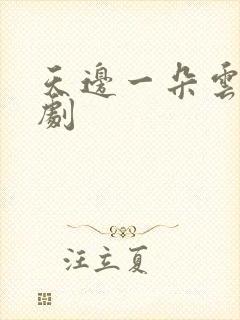 天邊一朵雲
劇
汪立夏